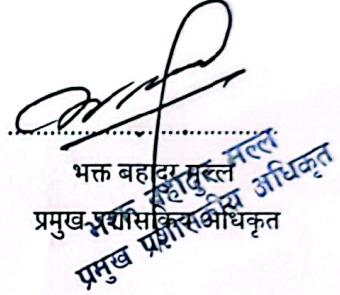 भक्त बहादुर मल्ल
प्रमुख प्रशासकिय अधिकृत
भक्त बहादुर मल्ल
प्रमुख प्रशासकीय अधिकृत